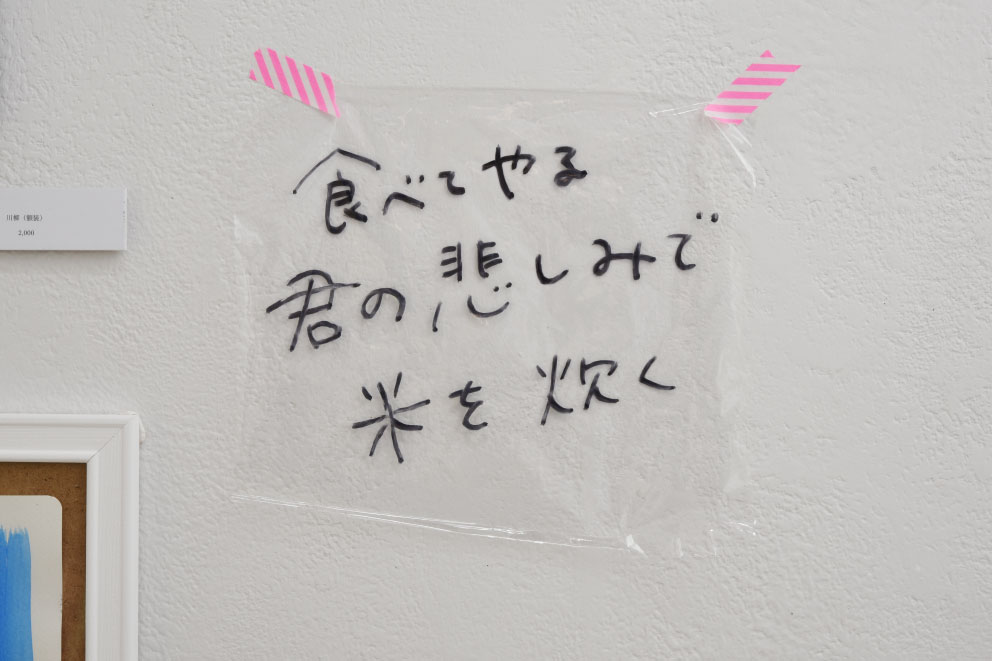 川柳(額装)
2,000
食べてやる
君の悲しみで
米を炊く